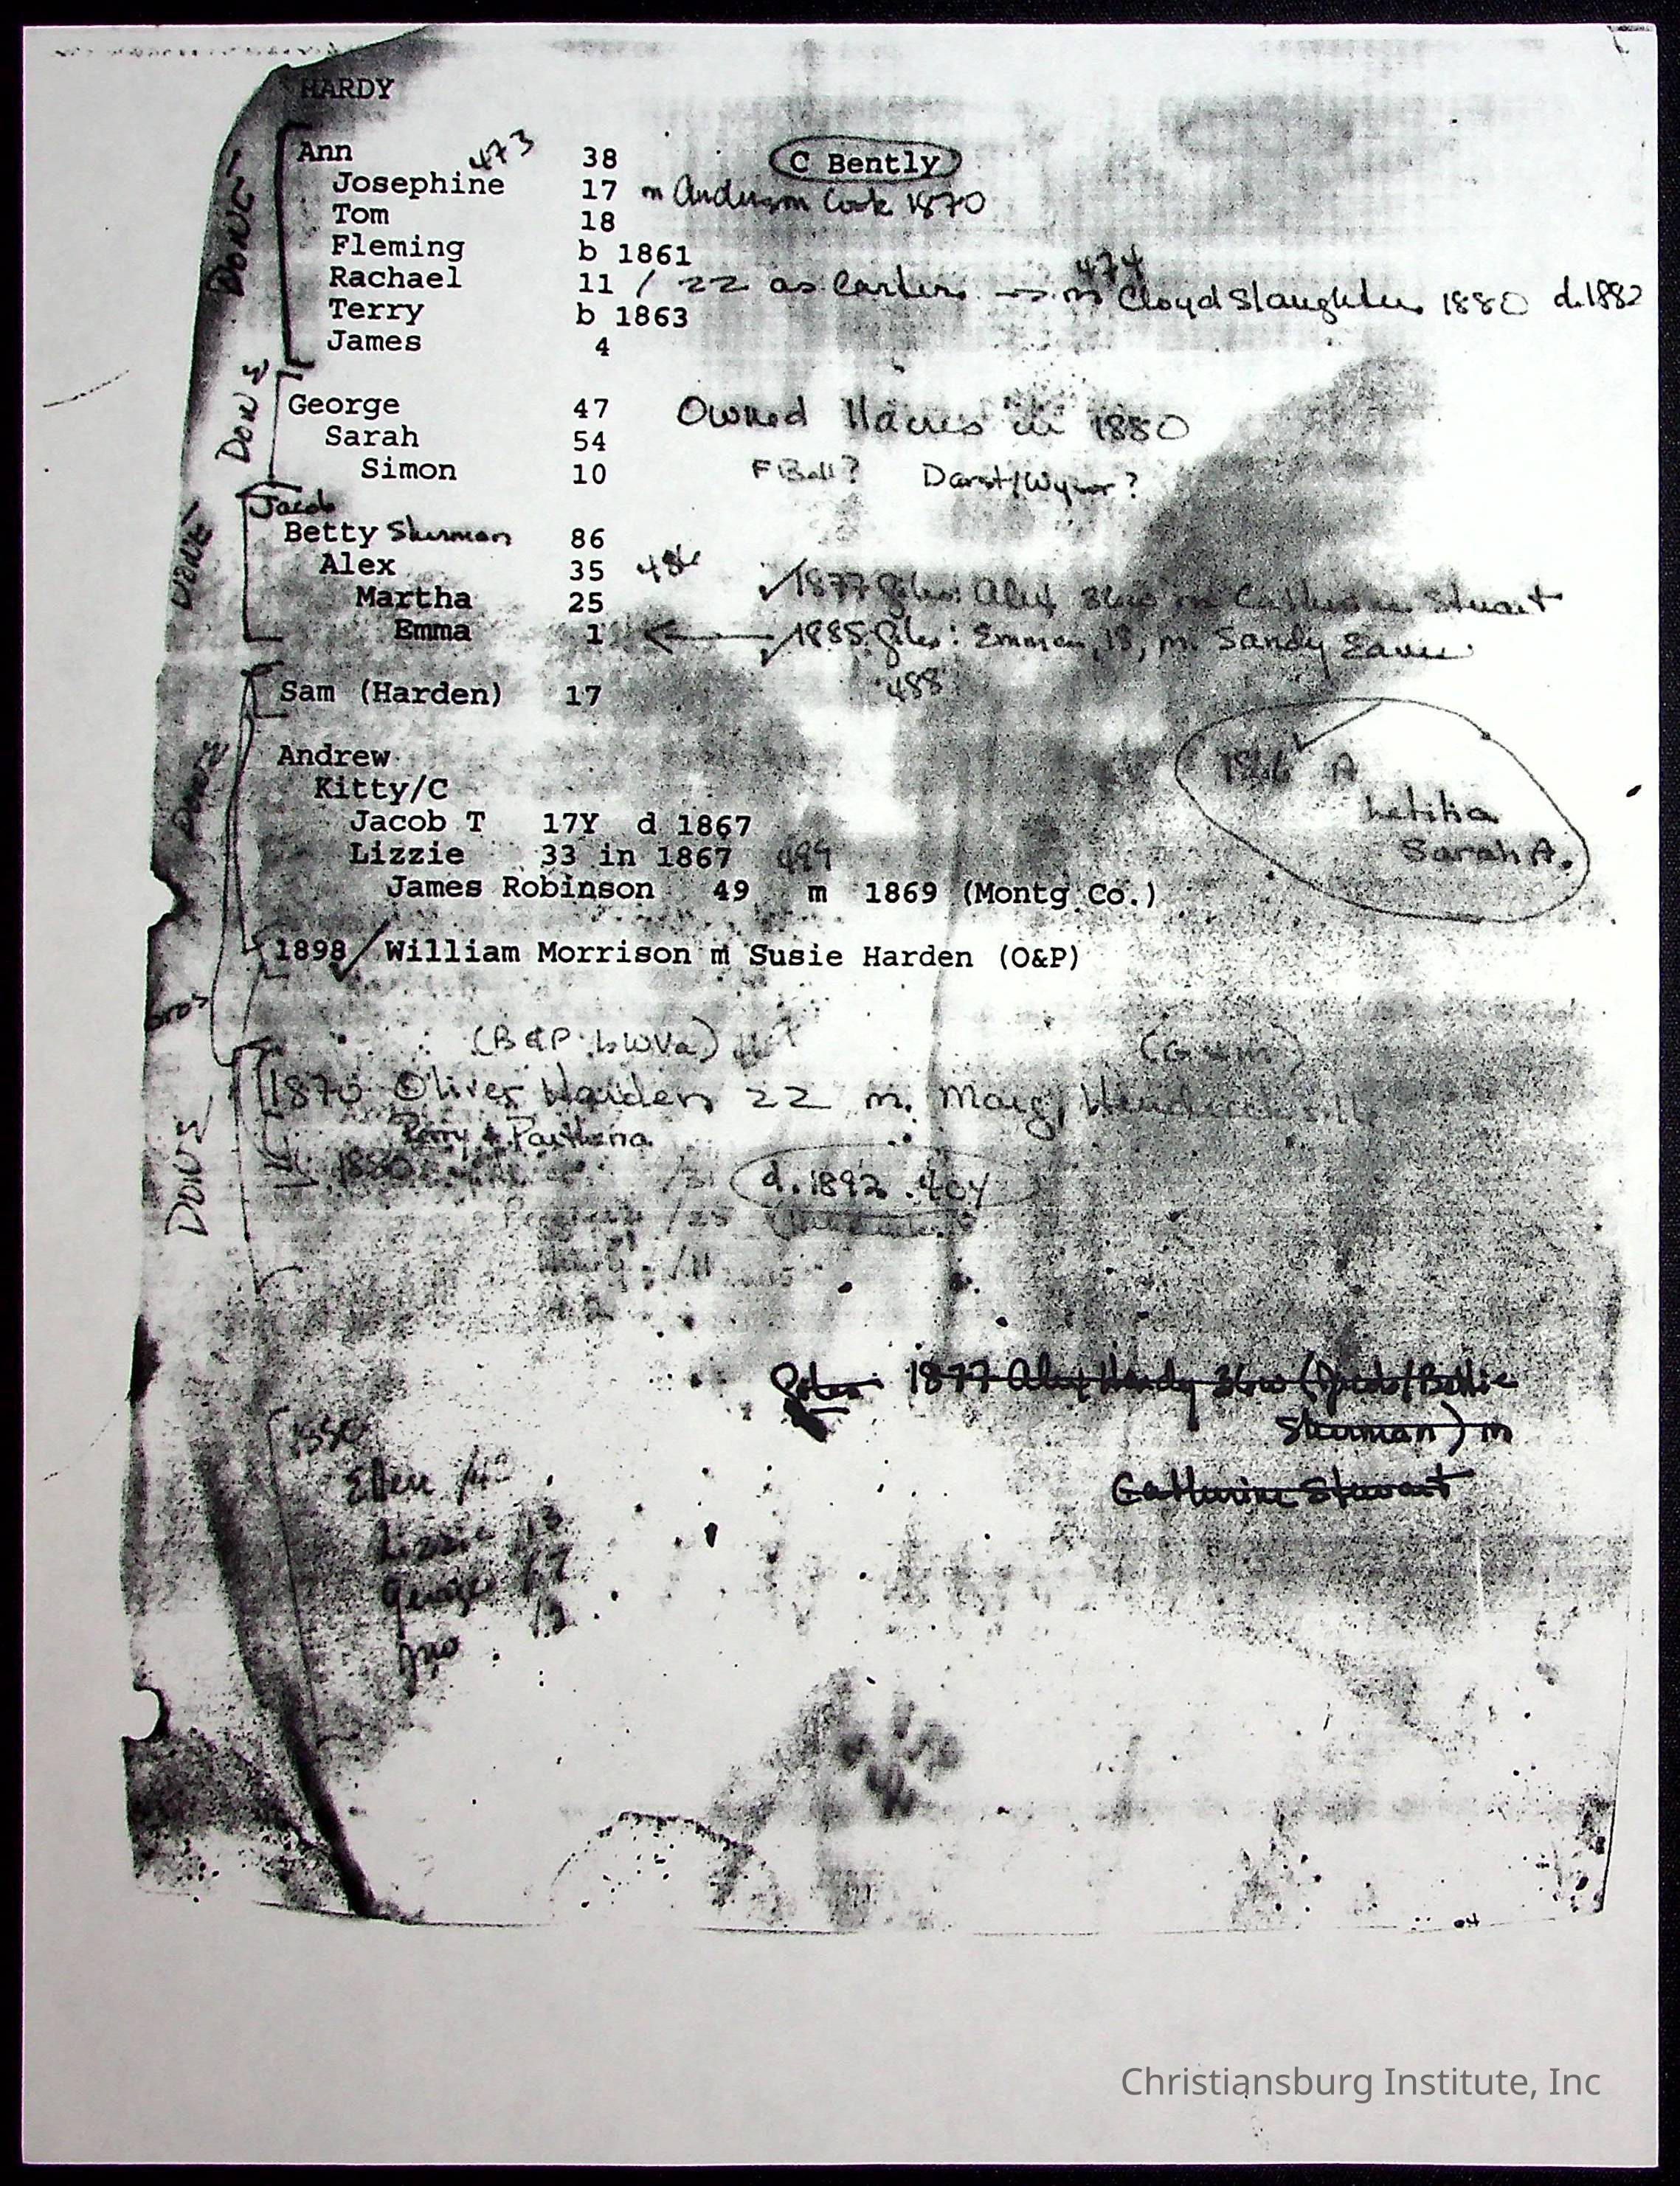 HARDY
Ann 473 38 C Bently
Josephine 17 m Anderson Cook 1870
Tom 18
Fleming b 1861
Rachael 11 / 22 as Carter → m 474 Cloyd Slaughter 1880 d. 1882
Terry b 1863
James 4
DONE
George 47 Owned 11 acres in 1880
Sarah 54
Simon 10 F Bell? Darst/Wysor?
DONE
Jacob
Betty Sherman 86
Alex 35 486 1877 Giles: Alex 36w m Catherine Stuart
Martha 25
Emma 1 1885 Giles: Emma, 18, m. Sandy
DONE
Sam (Harden) 17 488
Andrew 1866 A
Kitty/C Letitia
Jacob T 17Y d 1867
Lizzie 33 in 1867 499 Sarah A.
James Robinson 49 m 1869 (Montg Co.)
1898 William Morrison m Susie Harden (O&P)
(B&P b WVa) (G & M)
1870 Oliver Harden 22 m. Marg
Perry & Parthena
DONE
1880 /31 d. 1892 40y
/25
/11
Giles 1877 Alex Hardy 36w (Jacob/Bettie
Sherman) m
Catherine Stewart
1880
Ellen
Lizzie 13
George
Jno
Christiansburg Institute, Inc